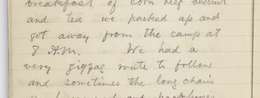 breakfast of corn beef biscuit
and tea we packed up and
got away from the camp at
8 A.M. We had a
very zigzag route to follow
and sometimes the long chain